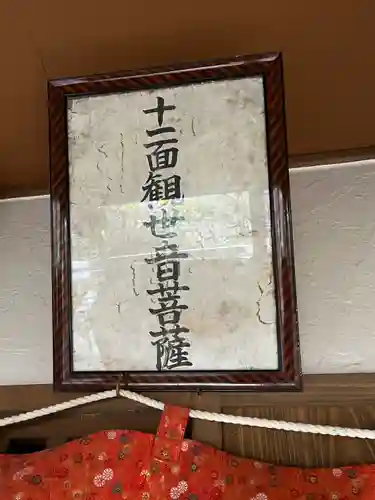 十一面観世音菩薩